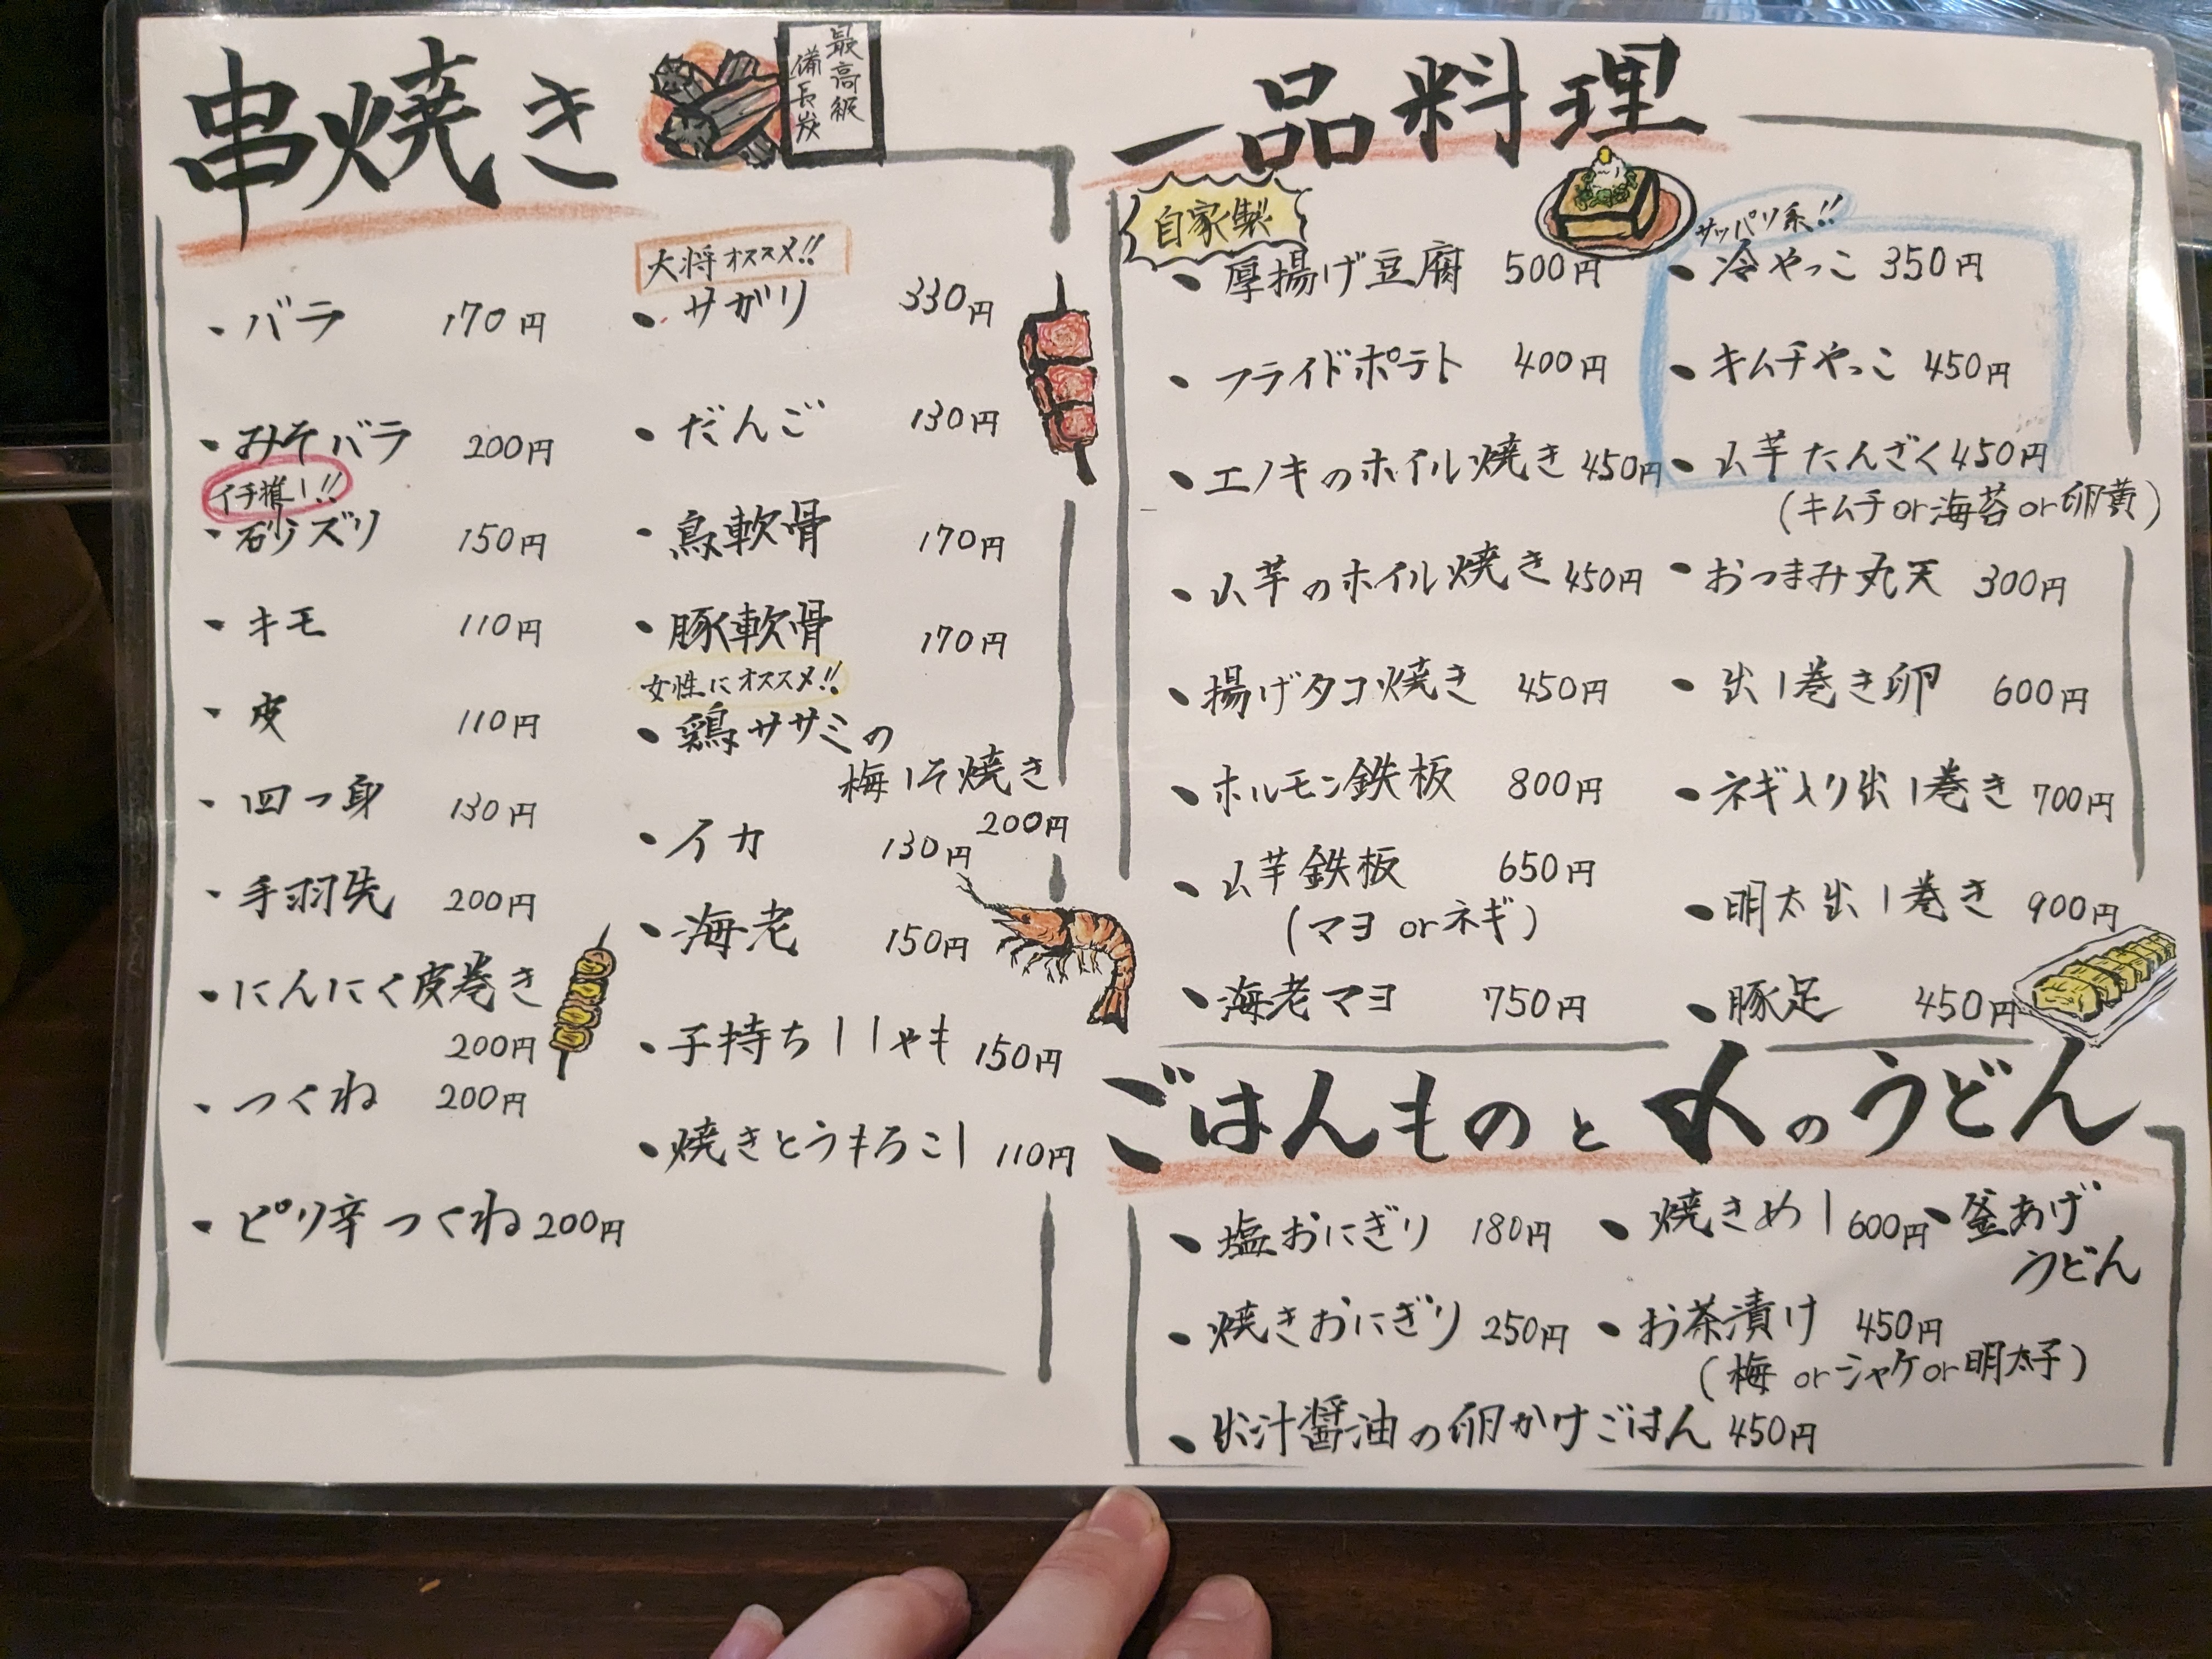 串焼き
最高級
備長炭
・バラ 170円
・みそバラ 200円
イチ推し!!
・砂ズリ 150円
・キモ 110円
・皮 110円
・四つ身 130円
・手羽先 200円
・にんにく皮巻き
200円
・つくね 200円
・ピリ辛つくね 200円
大将オススメ!!
・サガリ 330円
・だんご 130円
・鳥軟骨 170円
・豚軟骨 170円
女性にオススメ!!
・鶏ササミの
梅しそ焼き
200円
・イカ 130円
・海老 150円
・子持ちししゃも 150円
・焼きとうもろこし 110円
一品料理
自家製
・厚揚げ豆腐 500円
・フライドポテト 400円
・エノキのホイル焼き 450円
・山芋のホイル焼き 450円
・揚げタコ焼き 450円
・ホルモン鉄板 800円
・山芋鉄板 650円
(マヨ or ネギ)
・海老マヨ 750円
サッパリ系!!
・冷やっこ 350円
・キムチやっこ 450円
・山芋たんざく 450円
(キムチ or 海苔 or 卵黄)
・おつまみ丸天 300円
・出し巻き卵 600円
・ネギ入り出し巻き 700円
・明太出し巻き 900円
・豚足 450円
ごはんものと〆のうどん
・塩おにぎり 180円
・焼きおにぎり 250円
・出汁醤油の卵かけごはん 450円
・焼きめし 600円
・お茶漬け 450円
(梅 or シャケ or 明太子)
・釜あげ
うどん